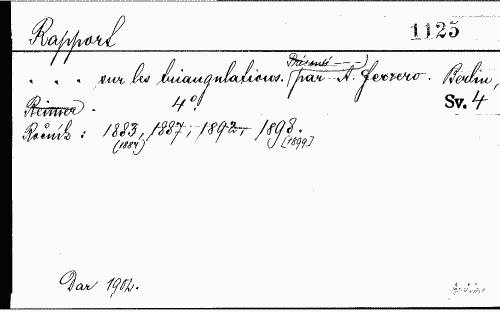 Rapport 1125
. . . sur les triangulations. (Présenté - - -) par A. Ferrero. Berlin,
Reimer. 4°. Sv. 4
Ročník : 1883, 1887, 1892, 1898.
(1884) [1899]
Dar 1902.